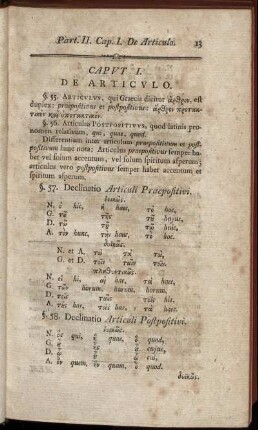 Part. II. Cap. I. De Articulo. 13
CAPVT I.
DE ARTICVLO.
§. 55. ARTICVLVS, qui Graecis dicitur ἄρθρον, est
duplex: praepositivus et postpositivus: ἄρθρον προτακ-
τικὸν καὶ ὑποτακτικόν.
§. 56. Articulus POSTPOSITIVVS, quod latinis prono-
men relativum, qui, quae, quod.
Discrimen inter articulum praepositivum et post-
positivum
positivus semper ha-
bet vel solum accentum, vel solum spiritum asperum;
articulus vero postpositivus semper habet accentum et
spiritum asperum.
§. 57. Declinatio Articuli Praepositivi.
ἑνικῶς.
N. ὁ hic, ἡ haec, τὸ hoc,
G. τοῦ τῆς τοῦ hujus,
D. τῷ τῇ τῷ huic,
A. τὸν hunc, τὴν hanc, τὸ hoc.
δυϊκῶς.
N. et A. τὼ τὰ τὼ
G. et D. τοῖν ταῖν τοῖν.
πληθυντικῶς.
N. οἱ hi, αἱ hae, τὰ haec,
G. τῶν horum, harum, horum,
D. τοῖς ταῖς τοῖς his.
A. τοὺς hos, τὰς has, τὰ haec.
§. 58. Declinatio Articuli Postpositivi.
ἑνικῶς.
N. ὃς qui, ἣ quae, ὃ quod,
G. οὗ ἧς οὗ cujus,
D. ᾧ ᾗ ᾧ cui,
A. ὃν quem, ἣν quam, ὃ quod.
δυϊκῶς.